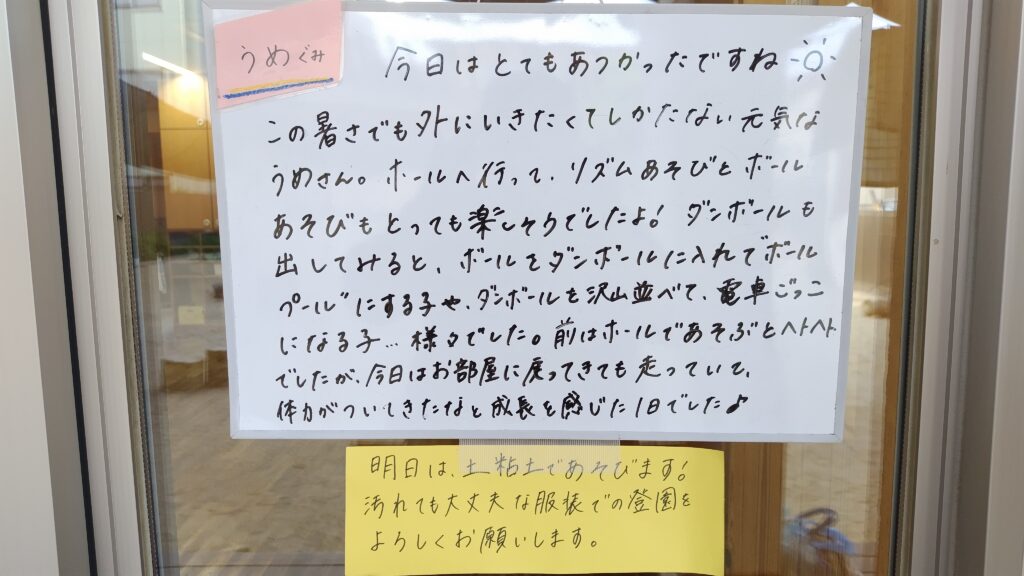 うめぐみ
今日はとてもあつかったですね
この暑さでも外にいきたくてしかたない元気な
うめさん。ホールへ行って、リズムあそびとボール
あそびもとっても楽しそうでしたよ! ダンボールも
出してみると、ボールをダンボールに入れてボール
プールにする子や、ダンボールを沢山並べて、電車ごっこ
になる子…様々でした。前はホールであそぶとヘトヘト
でしたが、今日はお部屋に戻ってきても走っていて、
体力がついてきたなと成長を感じた1日でした♪
明日は、土粘土であそびます!
汚れても大丈夫な服装での登園を
よろしくお願いします。